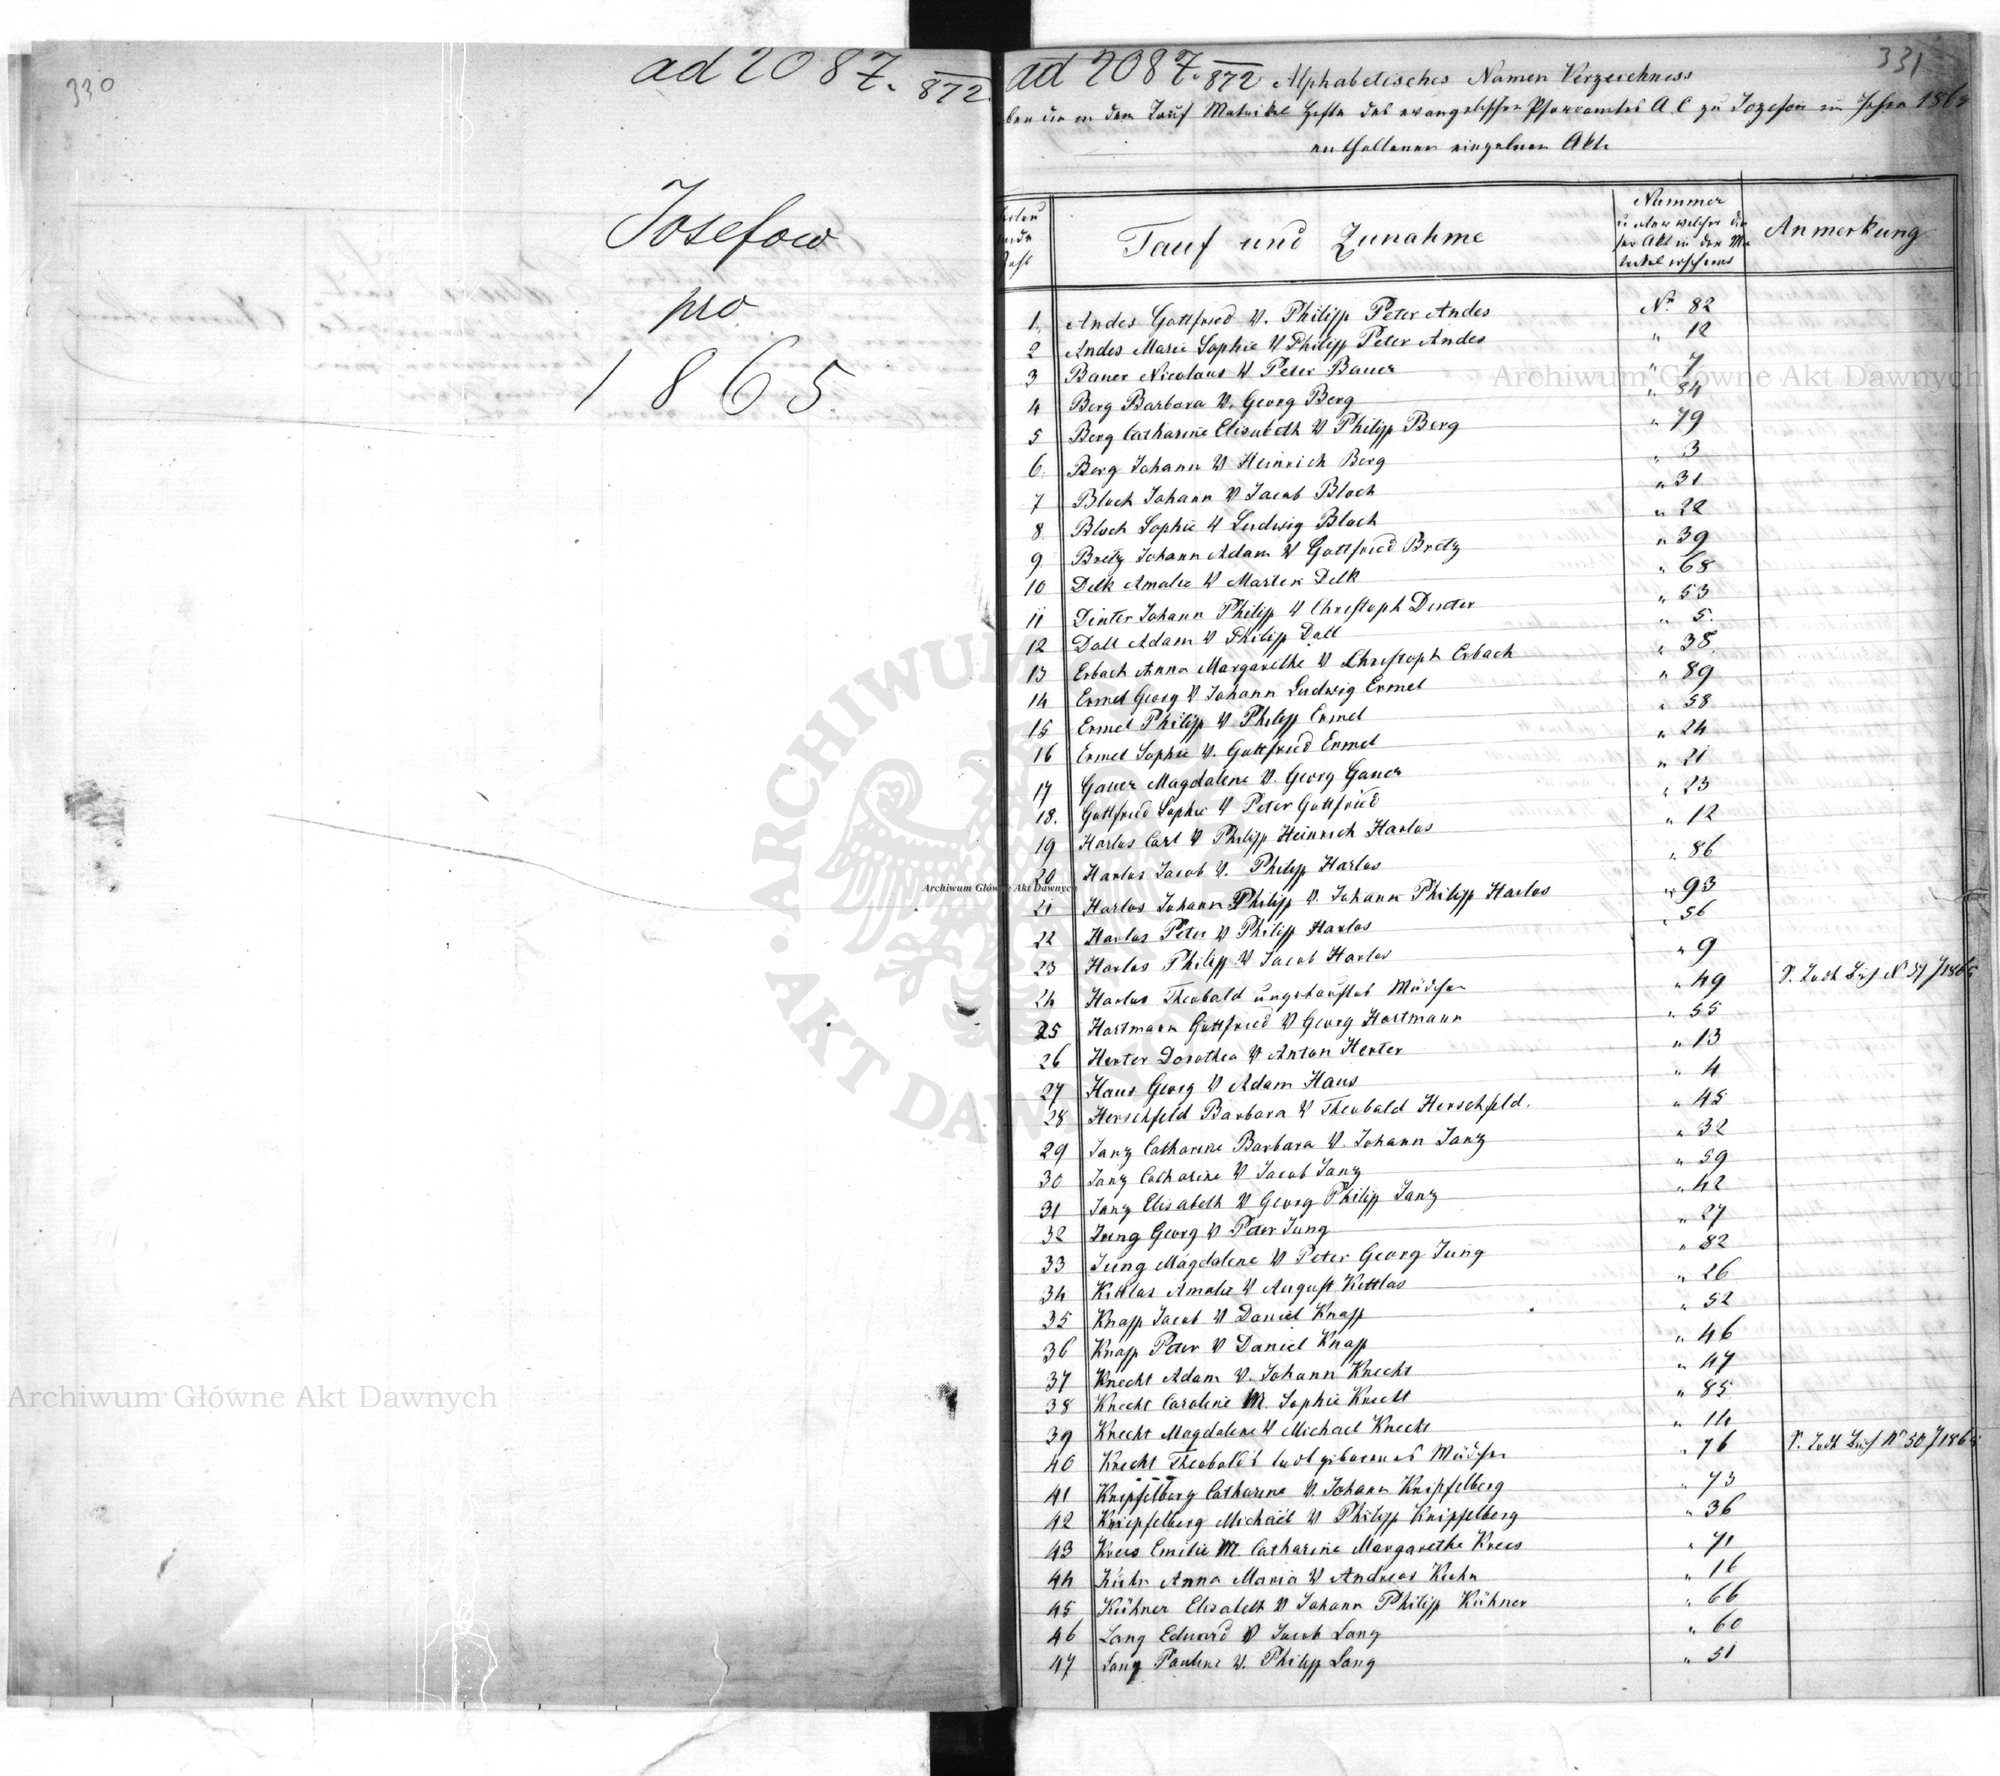 330
ad 2087. 872.
Josefow
pro
1865.
331
ad 2087. 872 Alphabetisches Namen Verzeichniss
über die in dem Tauf Matrikel Hefte des evangelischen Pfarramtes A. C zu Jozefow im Jahre 1865
enthaltenen einzelnen Akte
Tauf und Zunahme
Nummer
unter welcher die
ser Akt in der Ma
trikel erscheint
Anmerkung
1. Andes Gottfried V. Philipp Peter Andes Nr. 82
2 Andes Marie Sophie V Philipp Peter Andes " 12
3 Bauer Nicolaus V Peter Bauer " 7
4 Berg Barbara V. Georg Berg " 84
5 Berg Catharine Elisabeth V Philipp Berg " 79
6. Berg Johann V Heinrich Berg " 3
7 Bloch Johann V Jacob Bloch " 31
8. Bloch Sophie V Ludwig Bloch " 22
9 Bretz Johann Adam V Gottfried Bretz " 39
10 Delk Amalie V Martin Delk " 68
11 Dinter Johann Philipp V Christoph Dinter " 53
12 Doll Adam V Philipp Doll " 5.
13 Erbach Anna Margarethe V Christoph Erbach " 38.
14 Ermel Georg V Johann Ludwig Ermel " 89
15 Ermel Philipp V Philipp Ermel " 58
16 Ermel Sophie V. Gottfried Ermel " 24
17 Gauer Magdalene V. Georg Gauer " 21
18. Gottfried Sophie V Peter Gottfried " 23
19 Harlos Carl V Philipp Heinrich Harlos " 12
20 Harlos Jacob V. Philipp Harlos " 86
21 Harlos Johann Philipp V. Johann Philipp Harlos " 93
22 Harlos Peter V Philipp Harlos " 56
23 Harlos Philipp V Jacob Harlos " 9
24 Harlos Theobald ungetauftes Mädchen " 49
25 Hartmann Gottfried V Georg Hartmann " 55
26 Herter Dorothea V Anton Herter " 13
27 Haus Georg V Adam Haus " 4
28 Herschfeld Barbara V Theobald Herschfeld. " 45
29 Janz Catharine Barbara V. Johann Janz " 32
30 Janz Catharine V Jacob Janz " 59
31 Janz Elisabeth V Georg Philipp Janz " 42
32 Jung Georg V Peter Jung " 27
33 Jung Magdalene V Peter Georg Jung " 82
34 Kittlas Amalie V August Kittlas " 26
35 Knapp Jacob V Daniel Knapp " 52
36 Knapp Peter V Daniel Knapp " 46
37 Knecht Adam V. Johann Knecht " 47
38 Knecht Caroline M. Sophie Knecht " 85
39 Knecht Magdalene V Michael Knecht " 14
40 Knecht Theobald's todtgeborenes Mädchen " 76
41 Knipfelberg Catharine V. Johann Knipfelberg " 73
42 Knipfelberg Michael V Philipp Knipfelberg " 36
43 Krees Emilie M. Catharine Margarethe Krees " 71
44 Kuhn Anna Maria V Andreas Kuhn " 16
45 Kühner Elisabeth V Johann Philipp Kühner " 66
46 Lang Eduard V Jacob Lang " 60
47 Lang Pauline V. Philipp Lang " 51
Archiwum Główne Akt Dawnych
Archiwum Główne Akt Dawnych
Archiwum Główne Akt Dawnych